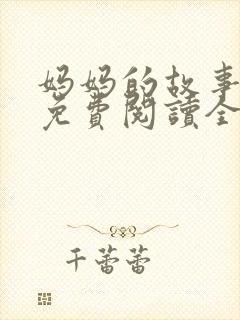 妈妈的故事
免費閱讀全
千蕾蕾